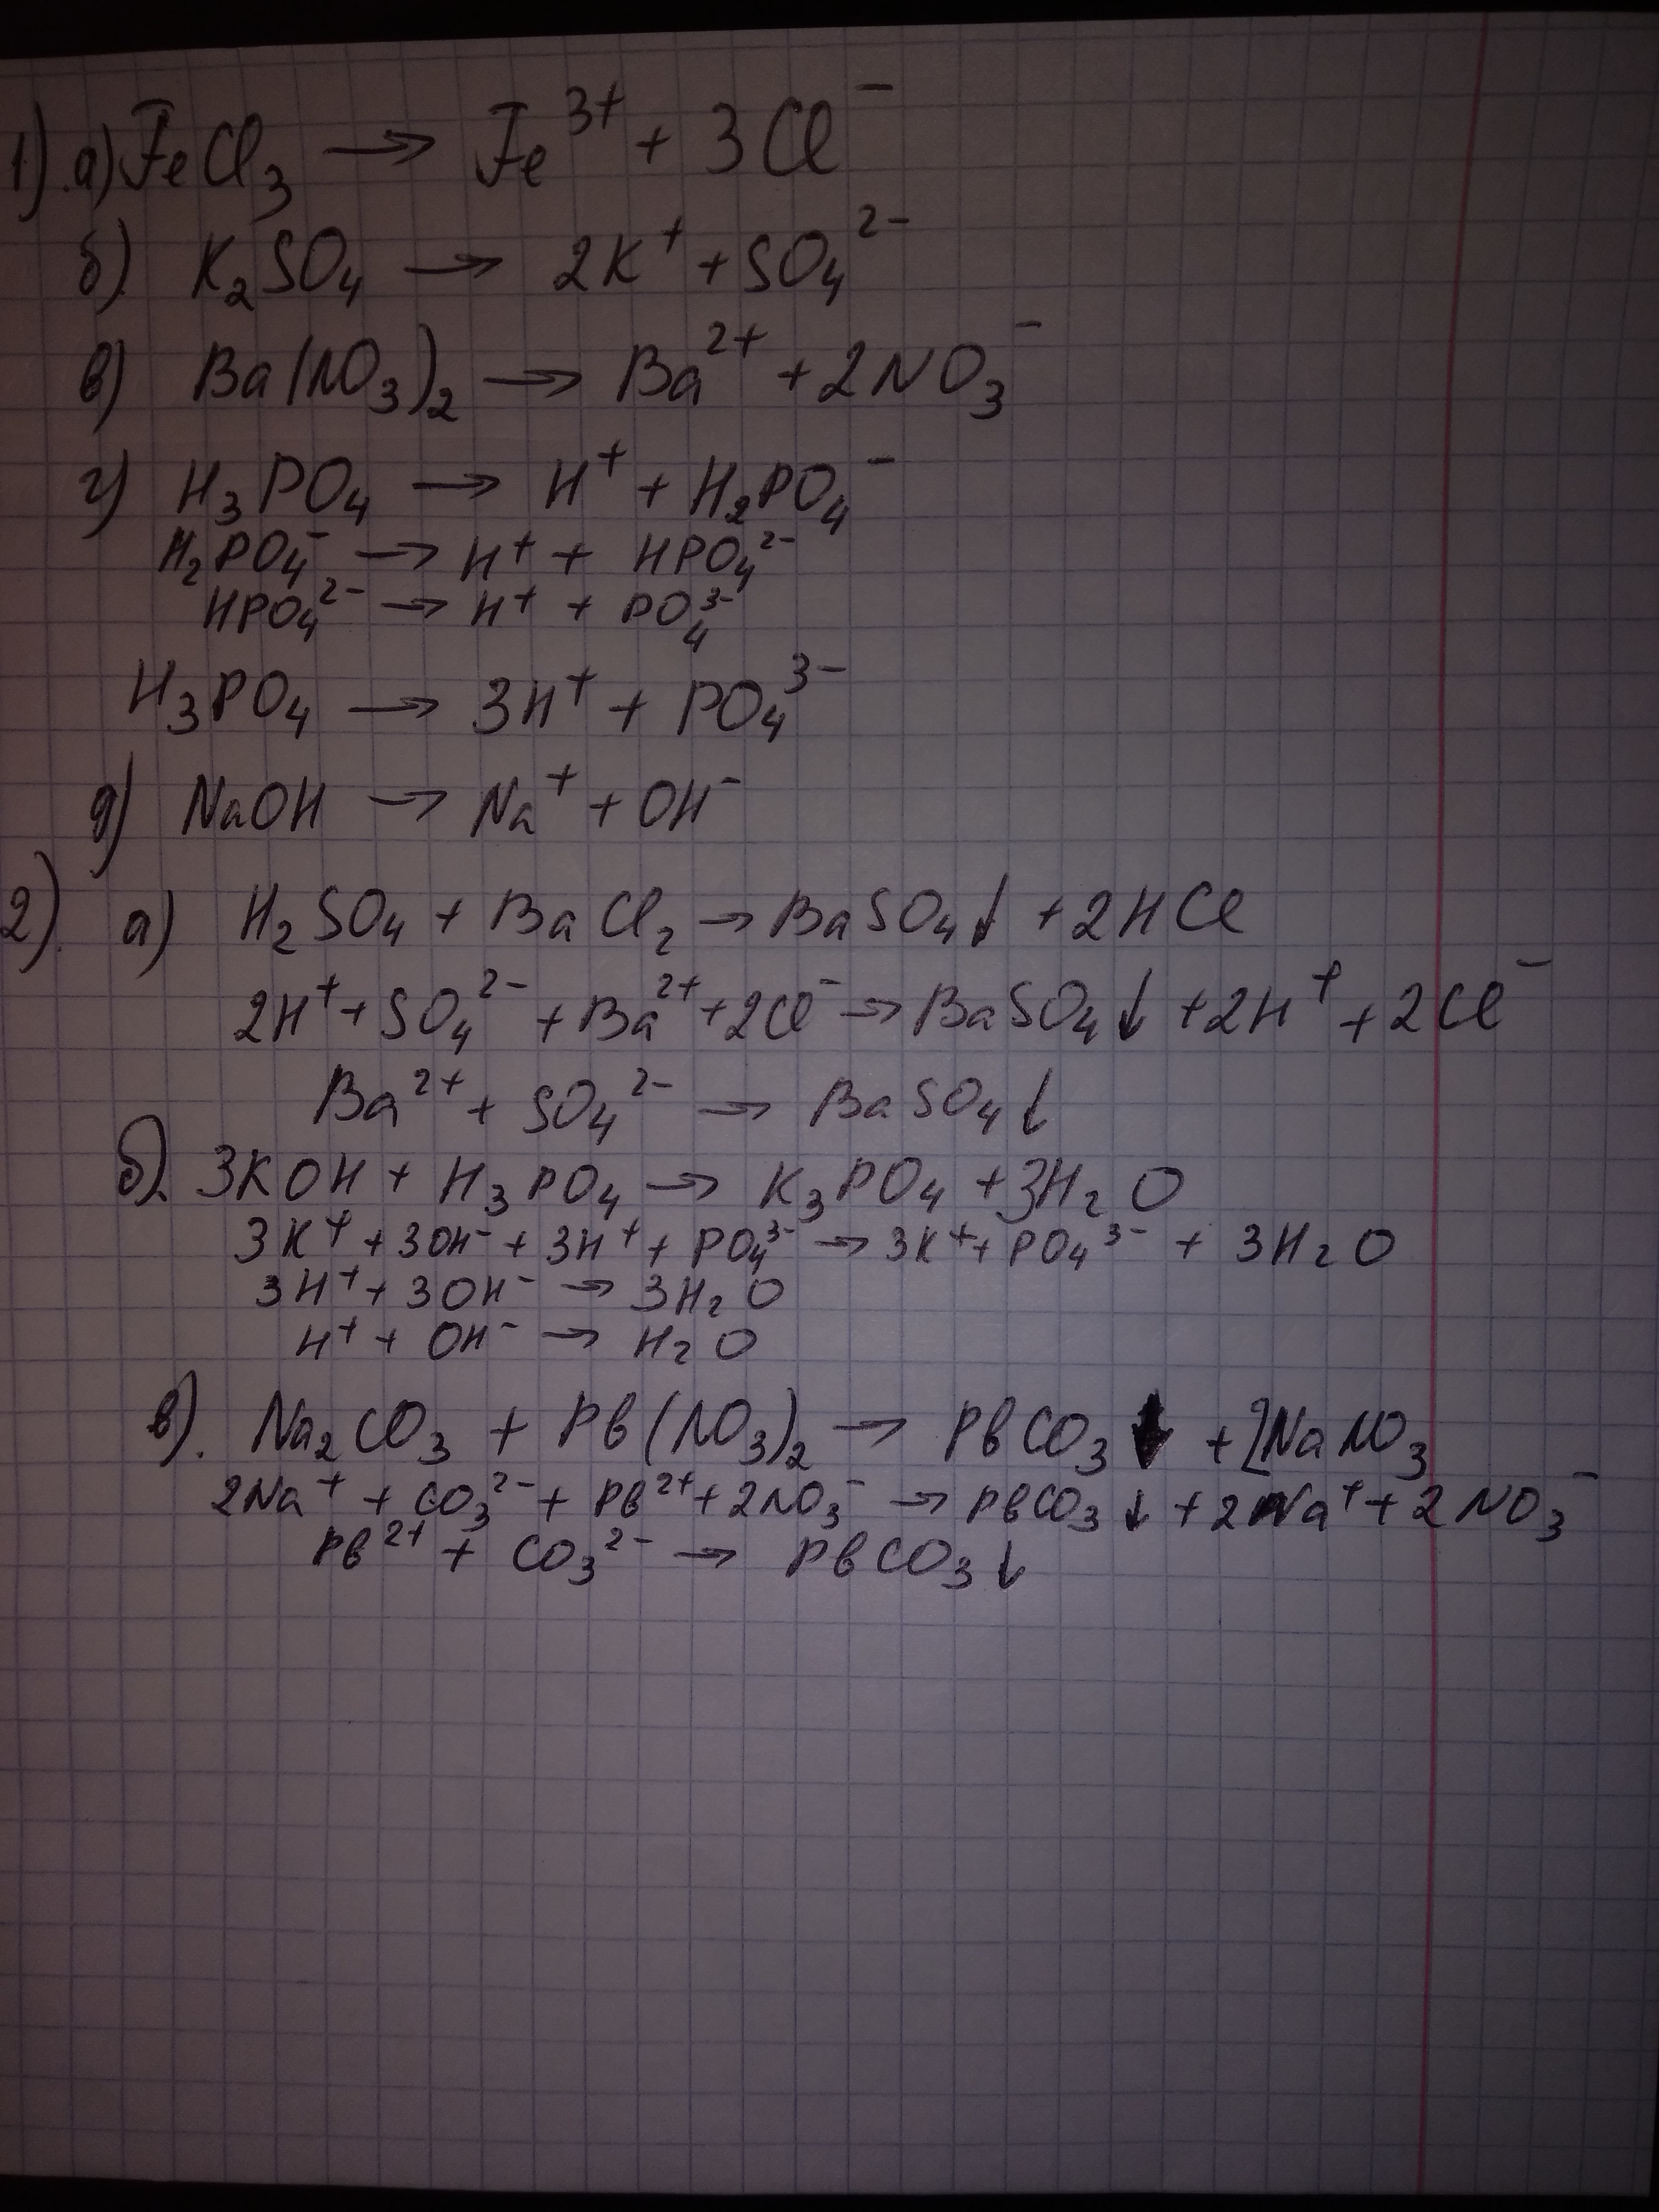 1). а) FeCl₃ → Fe³⁺ + 3Cl⁻
б) K₂SO₄ → 2K⁺ + SO₄²⁻
в) Ba(NO₃)₂ → Ba²⁺ + 2NO₃⁻
г) H₃PO₄ → H⁺ + H₂PO₄⁻
H₂PO₄⁻ → H⁺ + HPO₄²⁻
HPO₄²⁻ → H⁺ + PO₄³⁻
H₃PO₄ → 3H⁺ + PO₄³⁻
д) NaOH → Na⁺ + OH⁻
2). а) H₂SO₄ + BaCl₂ → BaSO₄↓ + 2HCl
2H⁺ + SO₄²⁻ + Ba²⁺ + 2Cl⁻ → BaSO₄↓ + 2H⁺ + 2Cl⁻
Ba²⁺ + SO₄²⁻ → BaSO₄↓
б). 3KOH + H₃PO₄ → K₃PO₄ + 3H₂O
3K⁺ + 3OH⁻ + 3H⁺ + PO₄³⁻ → 3K⁺ + PO₄³⁻ + 3H₂O
3H⁺ + 3OH⁻ → 3H₂O
H⁺ + OH⁻ → H₂O
в). Na₂CO₃ + Pb(NO₃)₂ → PbCO₃↓ + 2NaNO₃
2Na⁺ + CO₃²⁻ + Pb²⁺ + 2NO₃⁻ → PbCO₃↓ + 2Na⁺ + 2NO₃⁻
Pb²⁺ + CO₃²⁻ → PbCO₃↓